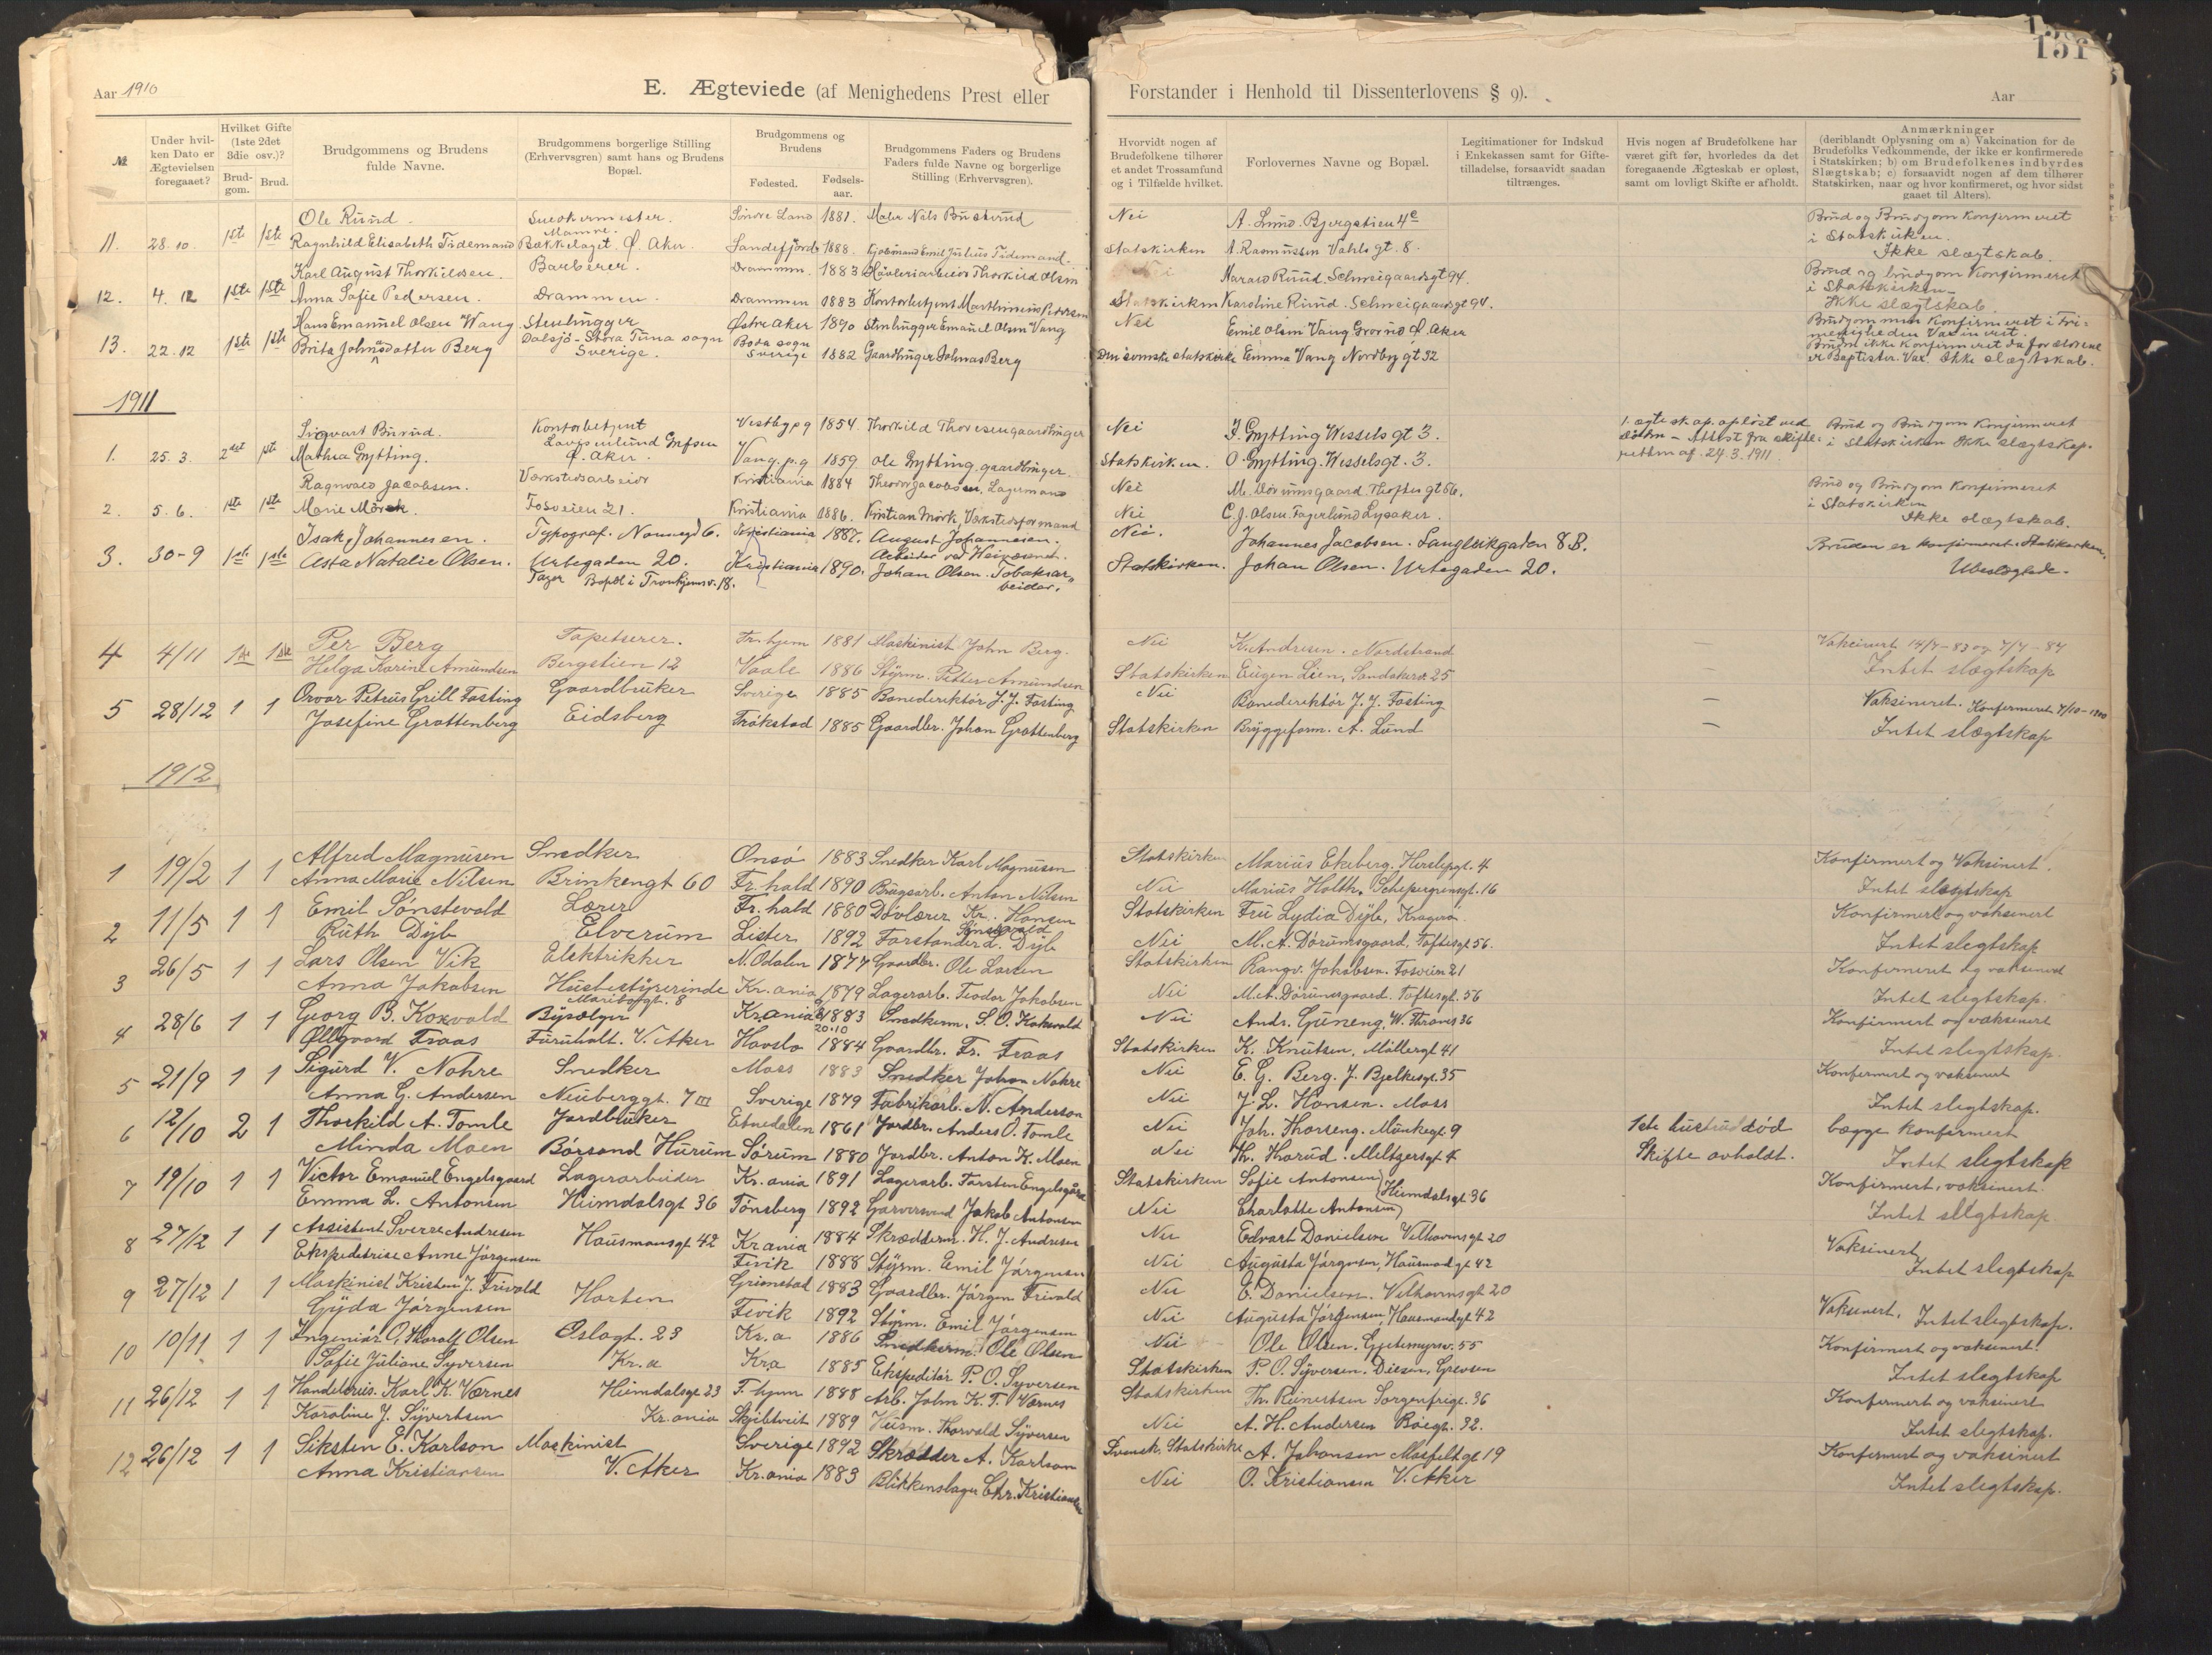 151
Aar 1910
E. Ægteviede (af Menighedens Prest eller Forstander i Henhold til Dissenterlovens § 9).
Aar
№
Under hvilken Dato er Ægtevielsen foregaaet?
Hvilket Gifte (1ste 2det 3die osv.)?
Brudgom.
Brud.
Brudgommens og Brudens fulde Navne.
Brudgommens borgerlige Stilling (Erhvervsgren) samt hans og Brudens Bopæl.
Brudgommens og Brudens
Fødested.
Fødselsaar.
Brudgommens Faders og Brudens Faders fulde Navne og borgerlige Stilling (Erhvervsgren).
Hvorvidt nogen af Brudefolkene tilhører et andet Trossamfund og i Tilfælde hvilket.
Forlovernes Navne og Bopæl.
Legitimationer for Indskud i Enkekassen samt for Giftetilladelse, forsaavidt saadan tiltrænges.
Hvis nogen af Brudefolkene har været gift før, hvorledes da det foregaaende Ægteskab er opløst, samt om lovligt Skifte er afholdt.
Anmærkninger (deriblandt Oplysning om a) Vakcination for de Brudefolks Vedkommende, der ikke er konfirmerede i Statskirken; b) om Brudefolkenes indbyrdes Slægtskab; c) forsaavidt nogen af dem tilhører Statskirken, naar og hvor konfirmeret, og hvor sidst gaaet til Alters).
Ole Ruud. Snedkermester. Søndre Land 1881. Maler Nils Buskerud Nei A. Lund Bjergstien 4c Brud og Brudgom Konfirmeret i Statskirken.
11. 28.10. 1ste 1ste Ragnhild Elisabeth Tidemand Bækkelaget Ø. Aker Sandefjord 1888. Kjøbmand Emil Julius Tidemand. Statskirken A Rasmussen Vahls gt. 8. Ikke slægtskab.
Karl August Thorkildsen. Barberer. Drammen. 1883 Høvleriarbeider Thorkild Olsen Nei Harald Ruud. Schweigaardsgt 94. Brud og brudgom Konfirmeret i Statskirken
12. 4. 12 1ste 1ste Anna Sofie Pedersen. Drammen. Drammen 1883 Kontorbetjent Marthinius Pedersen Statskirken Karoline Ruud. Schweigaardsgt 94. Ikke slægtskab
Hans Emanuel Olsen Vang Stenhugger Østre Aker 1890 Stenhugger Emanuel Olsen Vang Nei Emil Olsen Vang Grorud Ø. Aker Brudgommen Konfirmeret i Frimenigheden Vaxineret.
13. 22.12 1ste 1ste Brita Johnsdatter Berg Dalsjö - Stora Tuna sogn Sverige. Boda sogn Sverige 1882 Gaardbruger Johnas Berg Den svenske statskirke Emma Vang Nordbygt 32 Bruden ikke Konfirmeret da forældrene er Baptister. Vax. Ikke slægtskab.
1911
Sigvart Burud. Kontorbetjent Vestby pg 1854. Thorkild Thoresen gaardbruger Nei J. Grytting Wessels gt 3. 1. ægteskap opløst ved døden - Attest fra skifteretten af 24.3.1911. Brud og Brudgom Konfirmeret i Statskirken Ikke slægtskap.
1. 25.3. 2det 1ste Mathea Grytting. Ø. Aker. Vang. p.g 1859. Ole Grytting. gaardbruger Statskirken. O. Grytting. Wesselsgt. 3.
Ragnvald Jacobsen. Værkstedsarbeider Kristiania 1884 Theodor Jacobsen, Lagermand Nei M. Dörumsgaard. Thoftes gt 56. Brud og Brudgom Konfirmeret i Statskirken
2. 5.6. 1ste 1ste Marie Mörck. Fosveien 21. Kristiania 1886. Kristian Mörk, Værkstedsformand Nei C. J. Olsen. Fagerlund Lysaker. Ikke slægtskab.
Isak Johannesen. Typograf. Kristiania 1887. August Johannesen. Arbeider ved Veivæsenet. Nei. Johannes Jacobsen. Langleikgaden 8 B. Bruden er konfirmeret. Statskirken.
3. 30-9 1ste 1ste Asta Natalie Olsen. Urtegaden 20. Kristiania 1890. Johan Olsen. Tobaksarbeider. Statskirken. Johan Olsen. Urtegaden 20. Ubeslægtede.
Tager Bopæl i Tronhjemsv. 18.
4 4/11 1ste 1ste Per Berg Tapetserer. Tr.hjem 1881 Maskinist John Berg. Nei K. Andresen. Nordstrand Vakcinert 14/7-83 og 7/7-87
Helga Karine Amundsen Bergstien 12 Vaale 1886 Styrm. Petter Amundsen Statskirken Eugen Lien, Sandakerv. 25 Intet slægtskap
5 28/12 1 1 Orvar Petrus Grill Fasting Gaardbruker Sverige 1885 Banedirektör J. J. Fasting Nei Banedirektör J. J. Fasting Vaksineret. Konfermeret 7/10-1900
Josefine Grottenberg Eidsberg Tröksta​d 1885 Gaardbr. Johan Grottenberg Statskirken Bryggeform. A. Lund Intet slægtskap
1912
1 19/2 1 1 Alfred Magnusen Snedker Onsö 1883 Snedker Karl Magnusen Statskirken Marius Ekeberg. Herslepsgt. 4 Konfirmert og Vaksinert.
Anna Marie Nilsen Brinkengt 60 Fr.hald 1890 Brugsarb. Anton Nilsen Nei Marius Holth. 16 Intet slægtskap
2 11/5 1 1 Emil Sønstevold Lærer Fr. hald 1880 Døvlærer Kr. Hansen Sönstevold Statskirken Fru Lydia Dybe, Kragerö. Konfirmert og vaksinert
Ruth Dyb Elverum Lister 1892 Forstander d. Dyb Nei M. A. Dörumsgaard. Toftesgt 56. Intet slegtskap
3 26/5 1 1 Lars Olsen Vik Elektrikker N. Odalen 1877 Gaardbr. Ole Larsen Statskirken Rangv. Jakobsen. Fosveien 21 Konfermeret og vaksinert
Anna Jakobsen Husbestyrerinde Mariboesgt. 8 Kr.ania 1879 Lagerarb. Teodor Jakobsen Nei M. A. Dörumsgaard. Toftesgt. 56 Intet slegtskap.
4 28/6 1 1 Georg B. Koxvold Bysælger Kr.ania 1883 Snedkerm. S. O. Kokswold Nei Andr. Guneng, W. Thranes 36 Konfirmert og vaksinert
Ollgaard Fraas Furuholt. V. Aker Havslo 20.10 1884 Gaardbr. Fr. Fraas Statskirken K. Knutsen, Möllergt 41 Intet slegtskap.
5 21/9 1 1 Sigurd V. Nohre Snedker Moss 1883 Snedker Johan Nohre Nei E. G. Berg. J. Bjelkesgt. 35 Konfermert og vaksinert
Anna G. Andersen Neuberggt. 7 III Sverige 1879 Fabrikarb. N. Anderson Nei J. L. Hansen. Moss Intet slegtskap.
6 12/10 2 1 Thorkild A. Tomle Jordbruker Etnedalen 1861 Jordbr. Anders O. Tomle Nei Joh. Thorseng. Munkegt. 9 1ste hustrud död bægge konfermert
Minda Moen Börsand Hurum Sörum 1880 Jordbr. Anton K. Moen Nei Th. Horud. Meltzersgt 4 Skifte avholdt. Intet slegtskap
7 19/10 1 1 Victor Emanuel Engelsgaard Lagerarbeider Kr.ania 1891 Lagerarb. Torsten Engelsgård Statskirken Sofie Antonsen Konfirmert, vaksinert.
Emma L. Antonsen Heimdalsgt 36 Tönsberg 1892 Garversvend Jakob Antonsen Nei Charlotte Antonsen Heimdalsgt 36 Intet slegtskap
8 27/12 1 1 Assistent Sverre Andresen Hausmansgt 42 Kr.ania 1884 Skræddern. H. J. Andresen Nei Edvart Danielsen Vilhavensgt 20 Vaksinert
Ekspeditrise Anne Jörgensen Fevik 1888 Styrm. Emil Jörgensen Nei Augusta Jörgensen, Hausmandgt 42 Intet slegtskap
9 27/12 1 1 Maskinist Kristen J. Trivold Horten Grimstad 1883 Gaardbr. Jörgen Trivold Nei E. Danielsen. Vilhavensgt 20 Vaksinert. Intet slegtskap.
Gyda Jörgensen Fevik 1892 Styrm. Emil Jörgensen Nei Augusta Jörgensen, Hausmandgt 42
10 10/11 1 1 Ingeniör O. Thoralf Olsen Oslogt. 23 Kr.a 1886 Snedkerm. Ole Olsen Nei Ole Olsen. Gjetemyrsv. 55 Konfirmert og vaksinert.
Sofie Juliane Syversen Kr.a Kra 1885 Ekspeditör P. O. Syversen Statskirken P. O. Syversen. Disen, Grevsen Intet slegtskap
11 26/12 1 1 Handelsreis. Karl K. Værnes Heimdalsgt 23 T.hjem 1888 Arb. John K. T. Værnes Statskirken Th. Reinertsen Sorgenfrigt. 36 Konfermert og vaksinert
Karoline J. Syvertsen Kr.ania Skjebtveit 1889 Heism. Thorvald Syversen Nei A. H. Andersen Böegt. 32. Intet slegtskap.
12 26/12 1 1 Siksten E. Karlson Maskinist Sverige 1892 Skrædder A. Karlson Svensk. Statskirke A. Johansen Mosfeltgt 19 Konfermert og vaksinert
Anna Kristiansen V. Aker Kr.ania 1883 Blikkenslager Chr. Kristiansen Nei O. Kristiansen V. Aker Intet slegtskap.